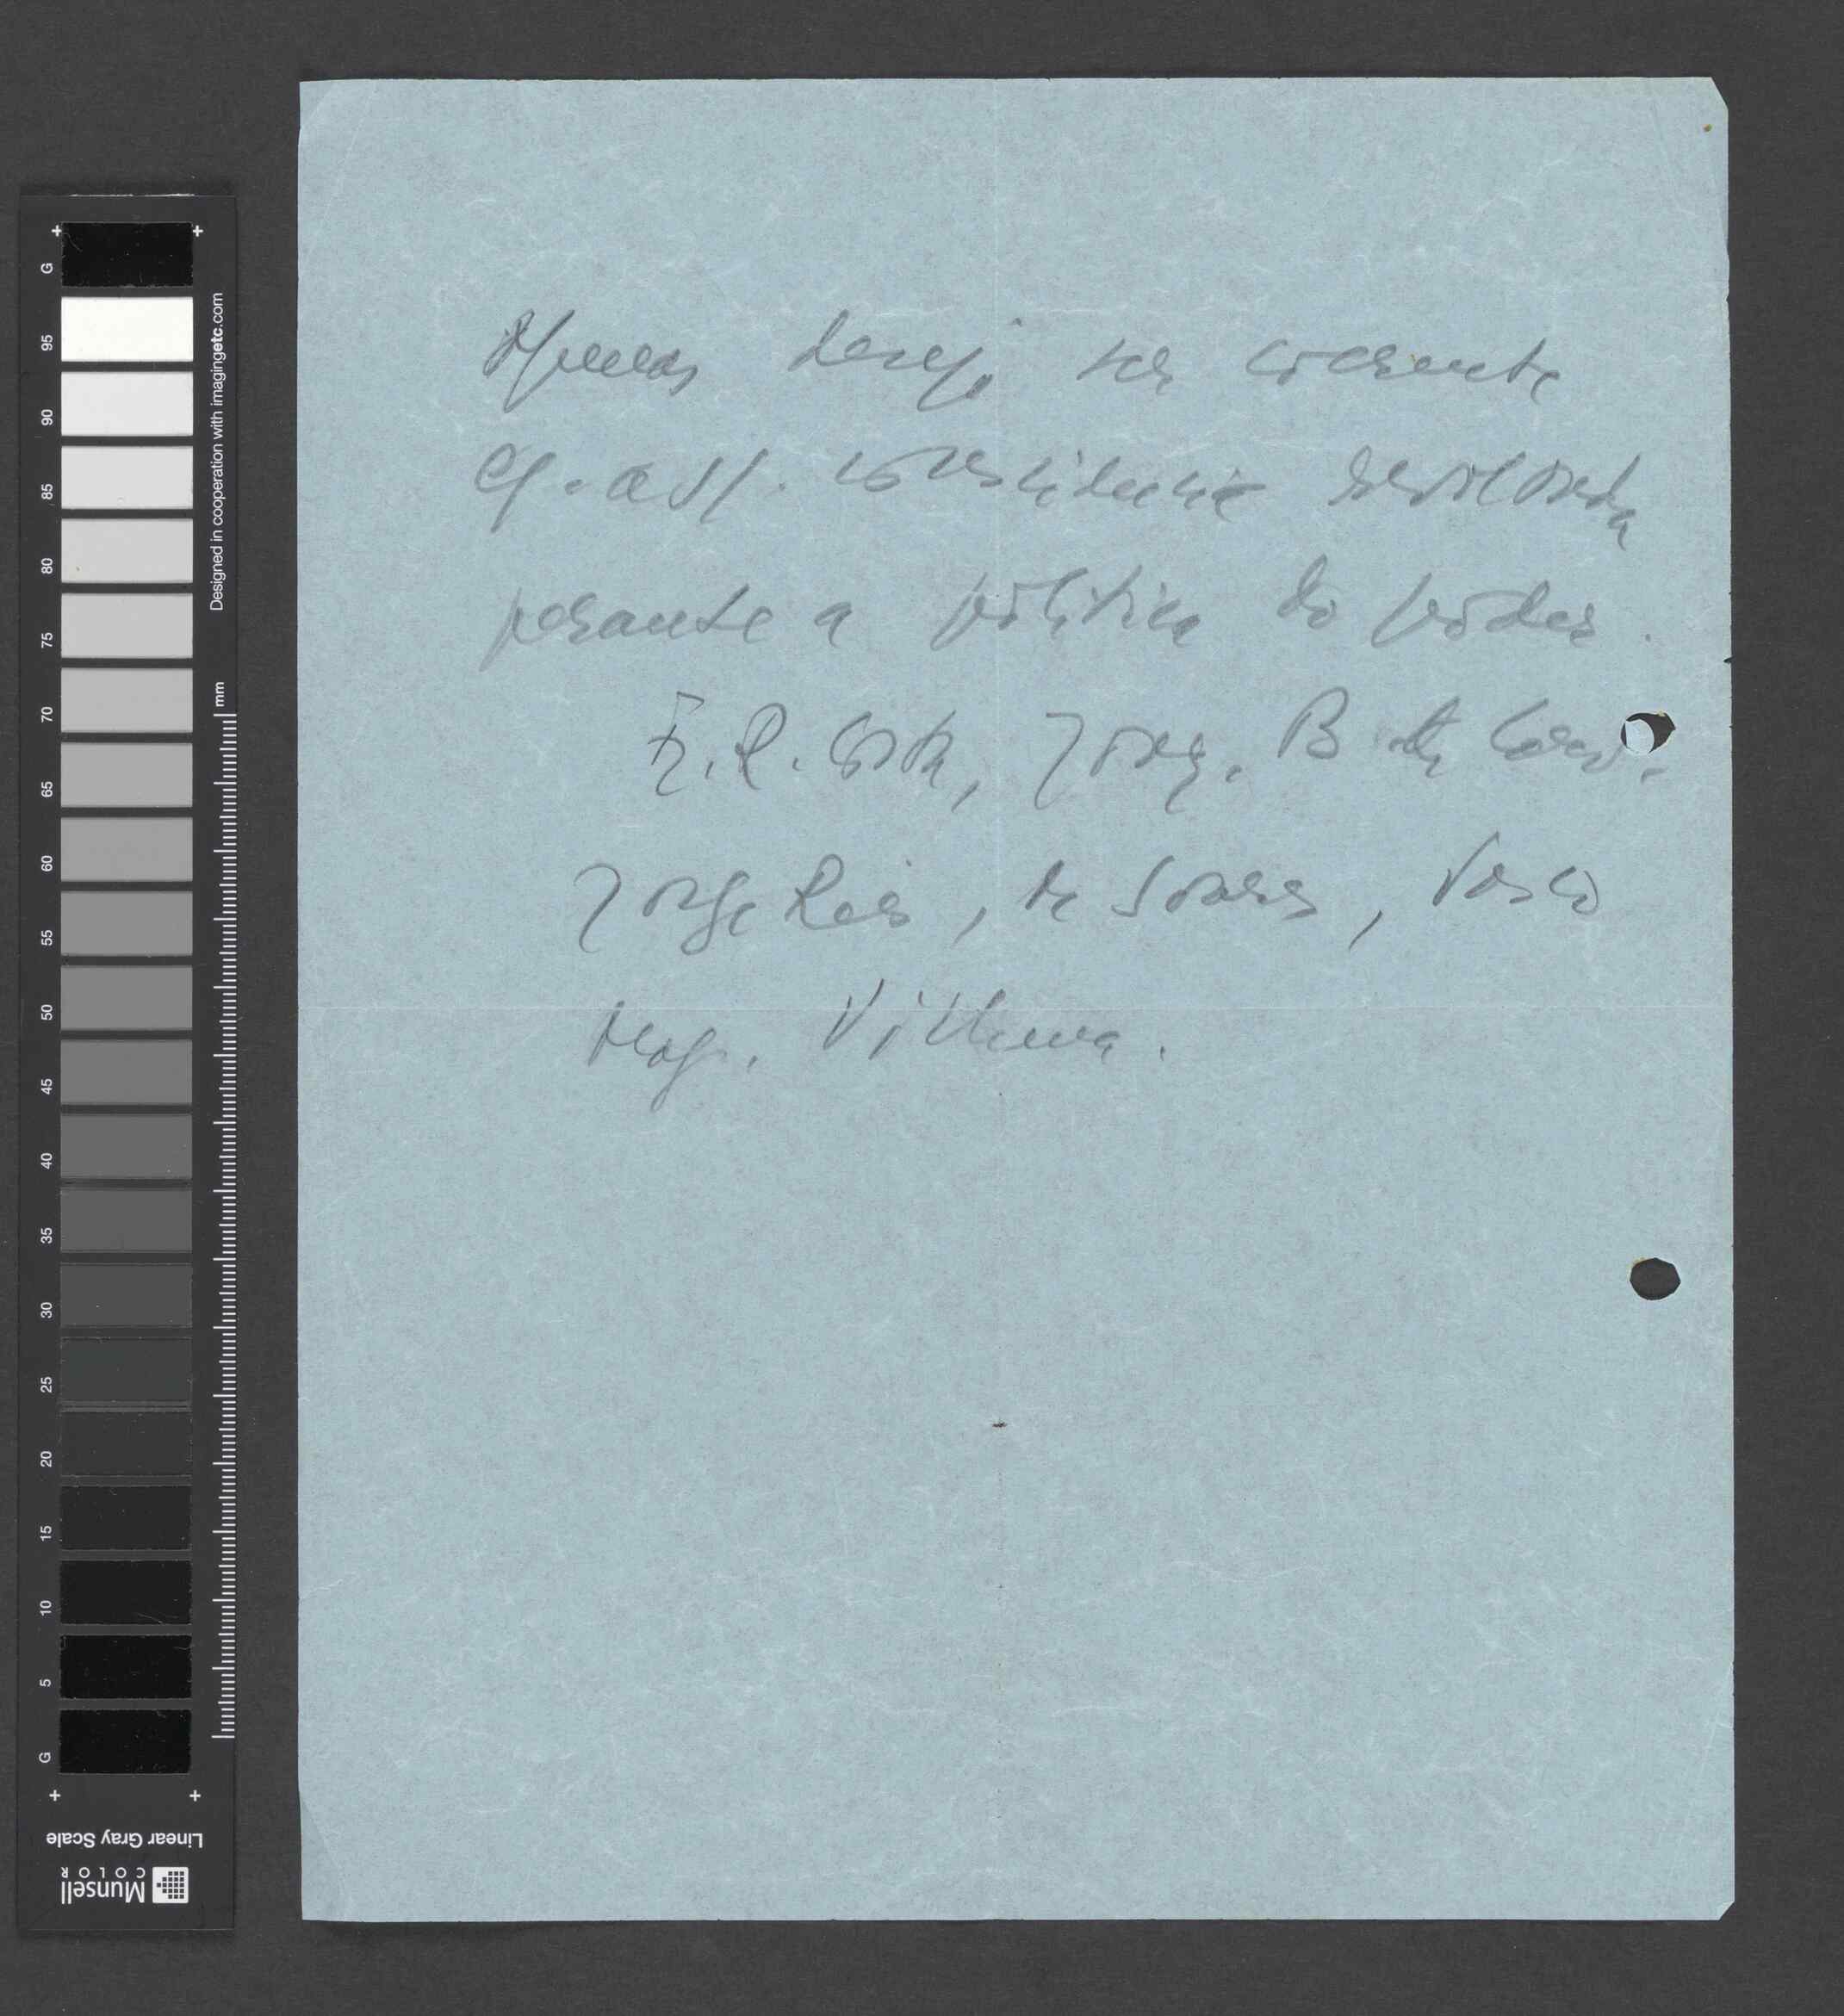 Apenas desejo ser coerente
c/. a s/. consciência revoltada
perante a política do poder.
F. R. 
Jorge Reis, de Soares, Vasco
Mag. Vilhena.
G 95 90 85 80 75 70 65 60 55 50 45 40 35 30 25 20 15 10 5 G
Designed in cooperation with imagingetc.com
mm
Linear Gray Scale
Munsell
COLOR